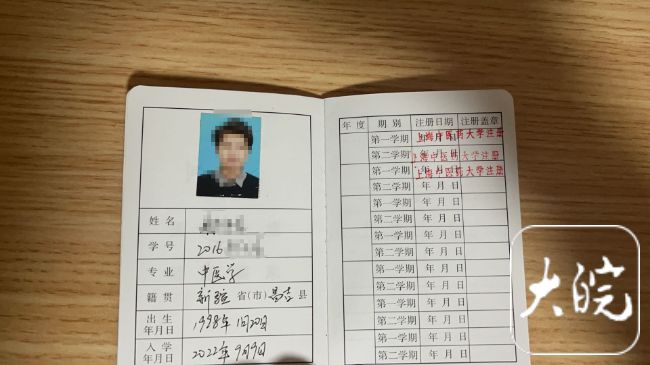 姓名
学号 2016
专业 中医学
籍贯 新疆 省(市) 昌吉 县
出生年月日 1998年1月20日
入学年月日 2022年9月9日
年度 期别 注册日期 注册盖章
第一学期 年 月 日 上海中医药大学注册
第二学期 年 月 日 上海中医药大学注册
第一学期 年 月 日 上海中医药大学注册
第二学期 年 月 日
第一学期 年 月 日
第二学期 年 月 日
第一学期 年 月 日
第二学期 年 月 日
第一学期 年 月 日
第二学期 年 月 日
第一学期 年 月 日
第二学期 年 月 日
大皖